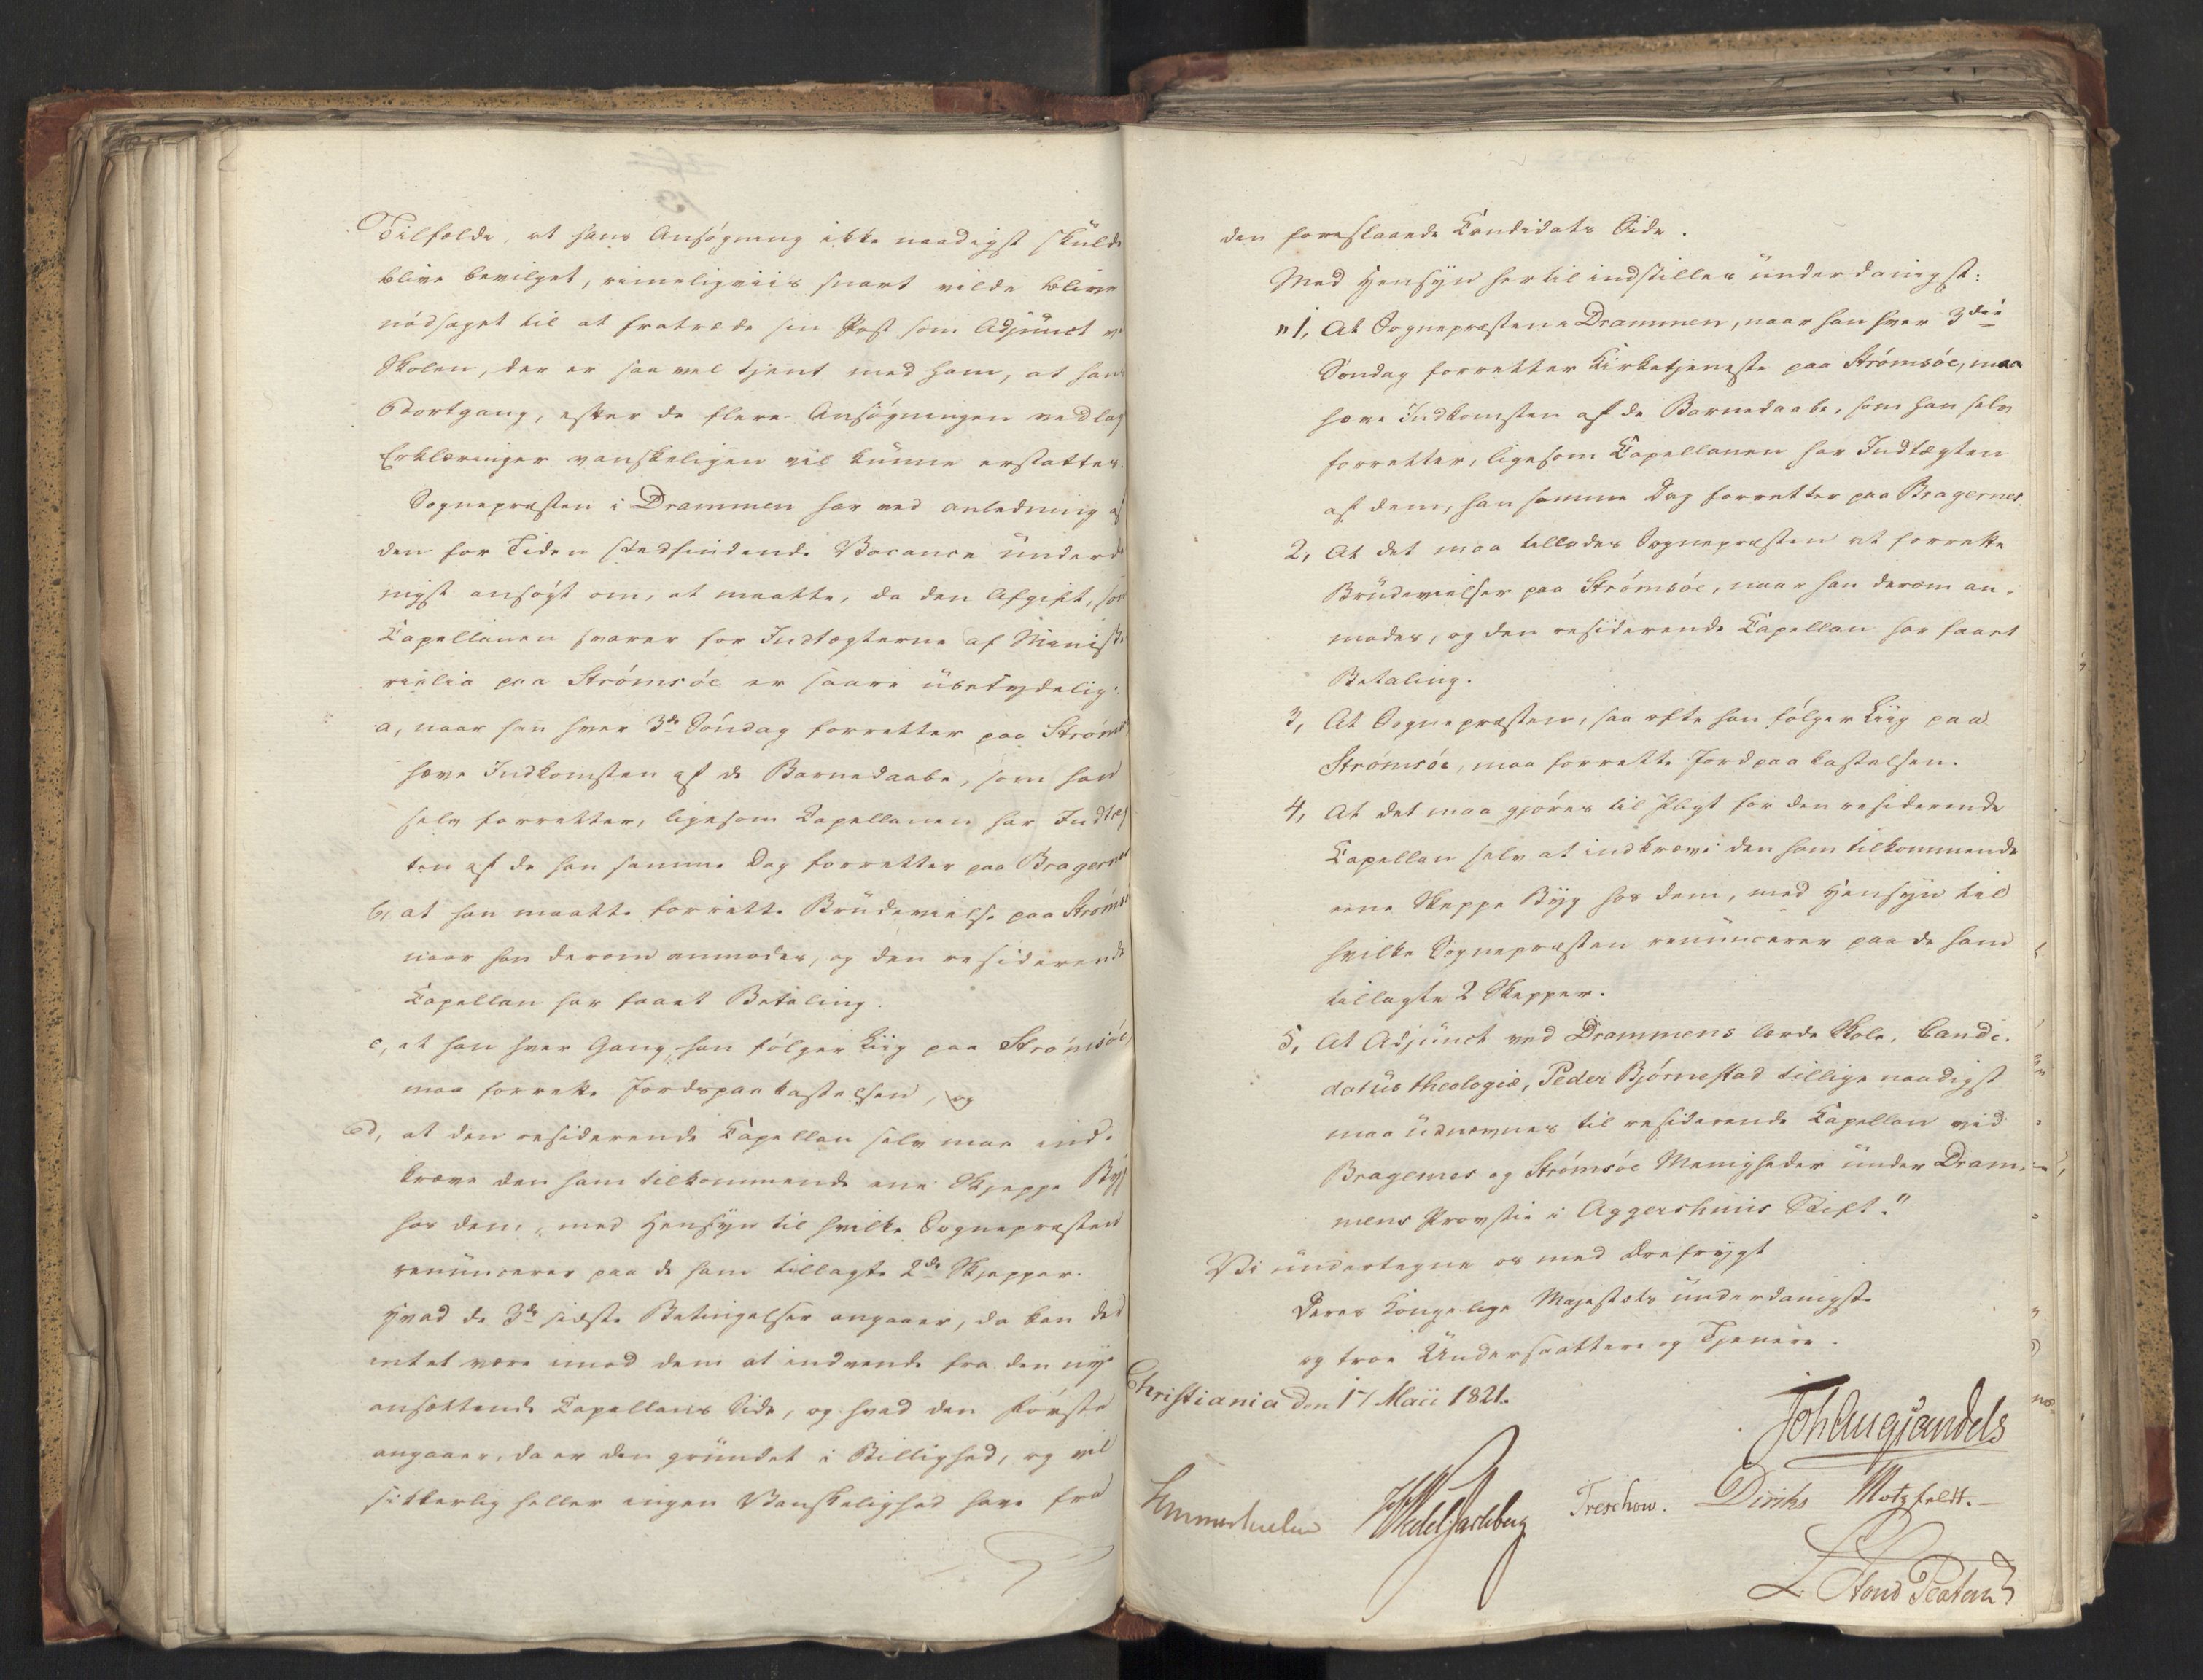 Tilfælde, at hans Ansøgning ikke naadigst skulde
blive bevilget, rimeligviis snart vilde blive
nødsaget til at fratræde sin Post som Adjunct v
Skolen, der er saa vel tjent med ham, at hans
Bortgang, efter de flere Ansøgningen vedlag
Erklæringer vanskeligen vil kunne erstattes.
Sognepræsten i Drammen har ved anledning af
den for Tiden stedfindende Vacance underd
nigst ansøgt om, at maatte, da den Afgift, som
Capellanen svarer for Indtægterne af Ministe
rialia paa Strømsøe er saare übetydelig:
a, naar han hver 3de Søndag forretter paa Strøms
hæve Indkomsten af de Barnedaabe, som han
selv forretter, ligesom Capellanen har Indtæg
ten af de han samme Dag forretter paa Bragernes
b, at han maatte forrette Brudevielse paa Strømsø
naar han derom anmodes, og den residerende
Capellan har faaet Betaling.
c, at han hver Gang, han følger Liig paa Strømsøe,
maa forrette Jordspaakastelsen, og
d, at den residerende Capellan selv maa ind-
kræve den ham tilkommende ene Skjeppe Byg
hos dem, med Hensyn til hvilke Sognepræsten
renuncerer paa de ham tillagte 2de Skjepper.
Hvad de 3de sidste Betingelser angaaer, da kan der
intet være imod dem at indvende fra den nye
ansættende Capellans Side, og hvad den første
angaaer, da er den grundet i Billighed, og vil
sikkerlig heller ingen Vanskelighed have fra
den foreslaaede Candidats Side.
Med Hensyn hertil indstilles underdanigst:
"1, At Sognepræsten i Drammen, naar han hver 3die
Søndag forretter Kirketjeneste paa Strømsøe, maa
hæve Indkomsten af de Barnedaabe, som han selv
forretter, ligesom Capellanen har Indtægten
af dem, han samme Dag forretter paa Bragernes.
2, At det maa tillades Sognepræsten at forrette
Brudevielser paa Strømsøe, naar han derom an-
modes, og den residerende Capellan har faaet
Betaling.
3, At Sognepræsten, saa ofte han følger Liig paa
Strømsøe, maa forrette Jordpaakastelsen.
4, At det maa gjøres til Pligt for den residerende
Capellan selv at indkræve den ham tilkommende
ene Skeppe Byg hos dem, med Hensyn til
hvilke Sognepræsten renuncerer paa de ham
tillagte 2 Skepper.
5, At Adjunct ved Drammens lærde Skole, Candi-
datus theologiæ, Peder Bjørnestad tillige naadigst
maa udnævnes til residerende Capellan ved
Bragernes og Strømsøe Menigheder under Dram-
mens Provstie i Aggershuus Stift."
Vi undertegne os med Ærefrygt
Deres Kongelige Majestæts underdanigste
og troe Undersaattere og Tjenere.
Christiania den 17 Maii 1821.
Joh Aug Sandels
Sommerhielm HWedel Jarlsberg Treschow. Diriks Motzfeldt.
L Stoud Platou